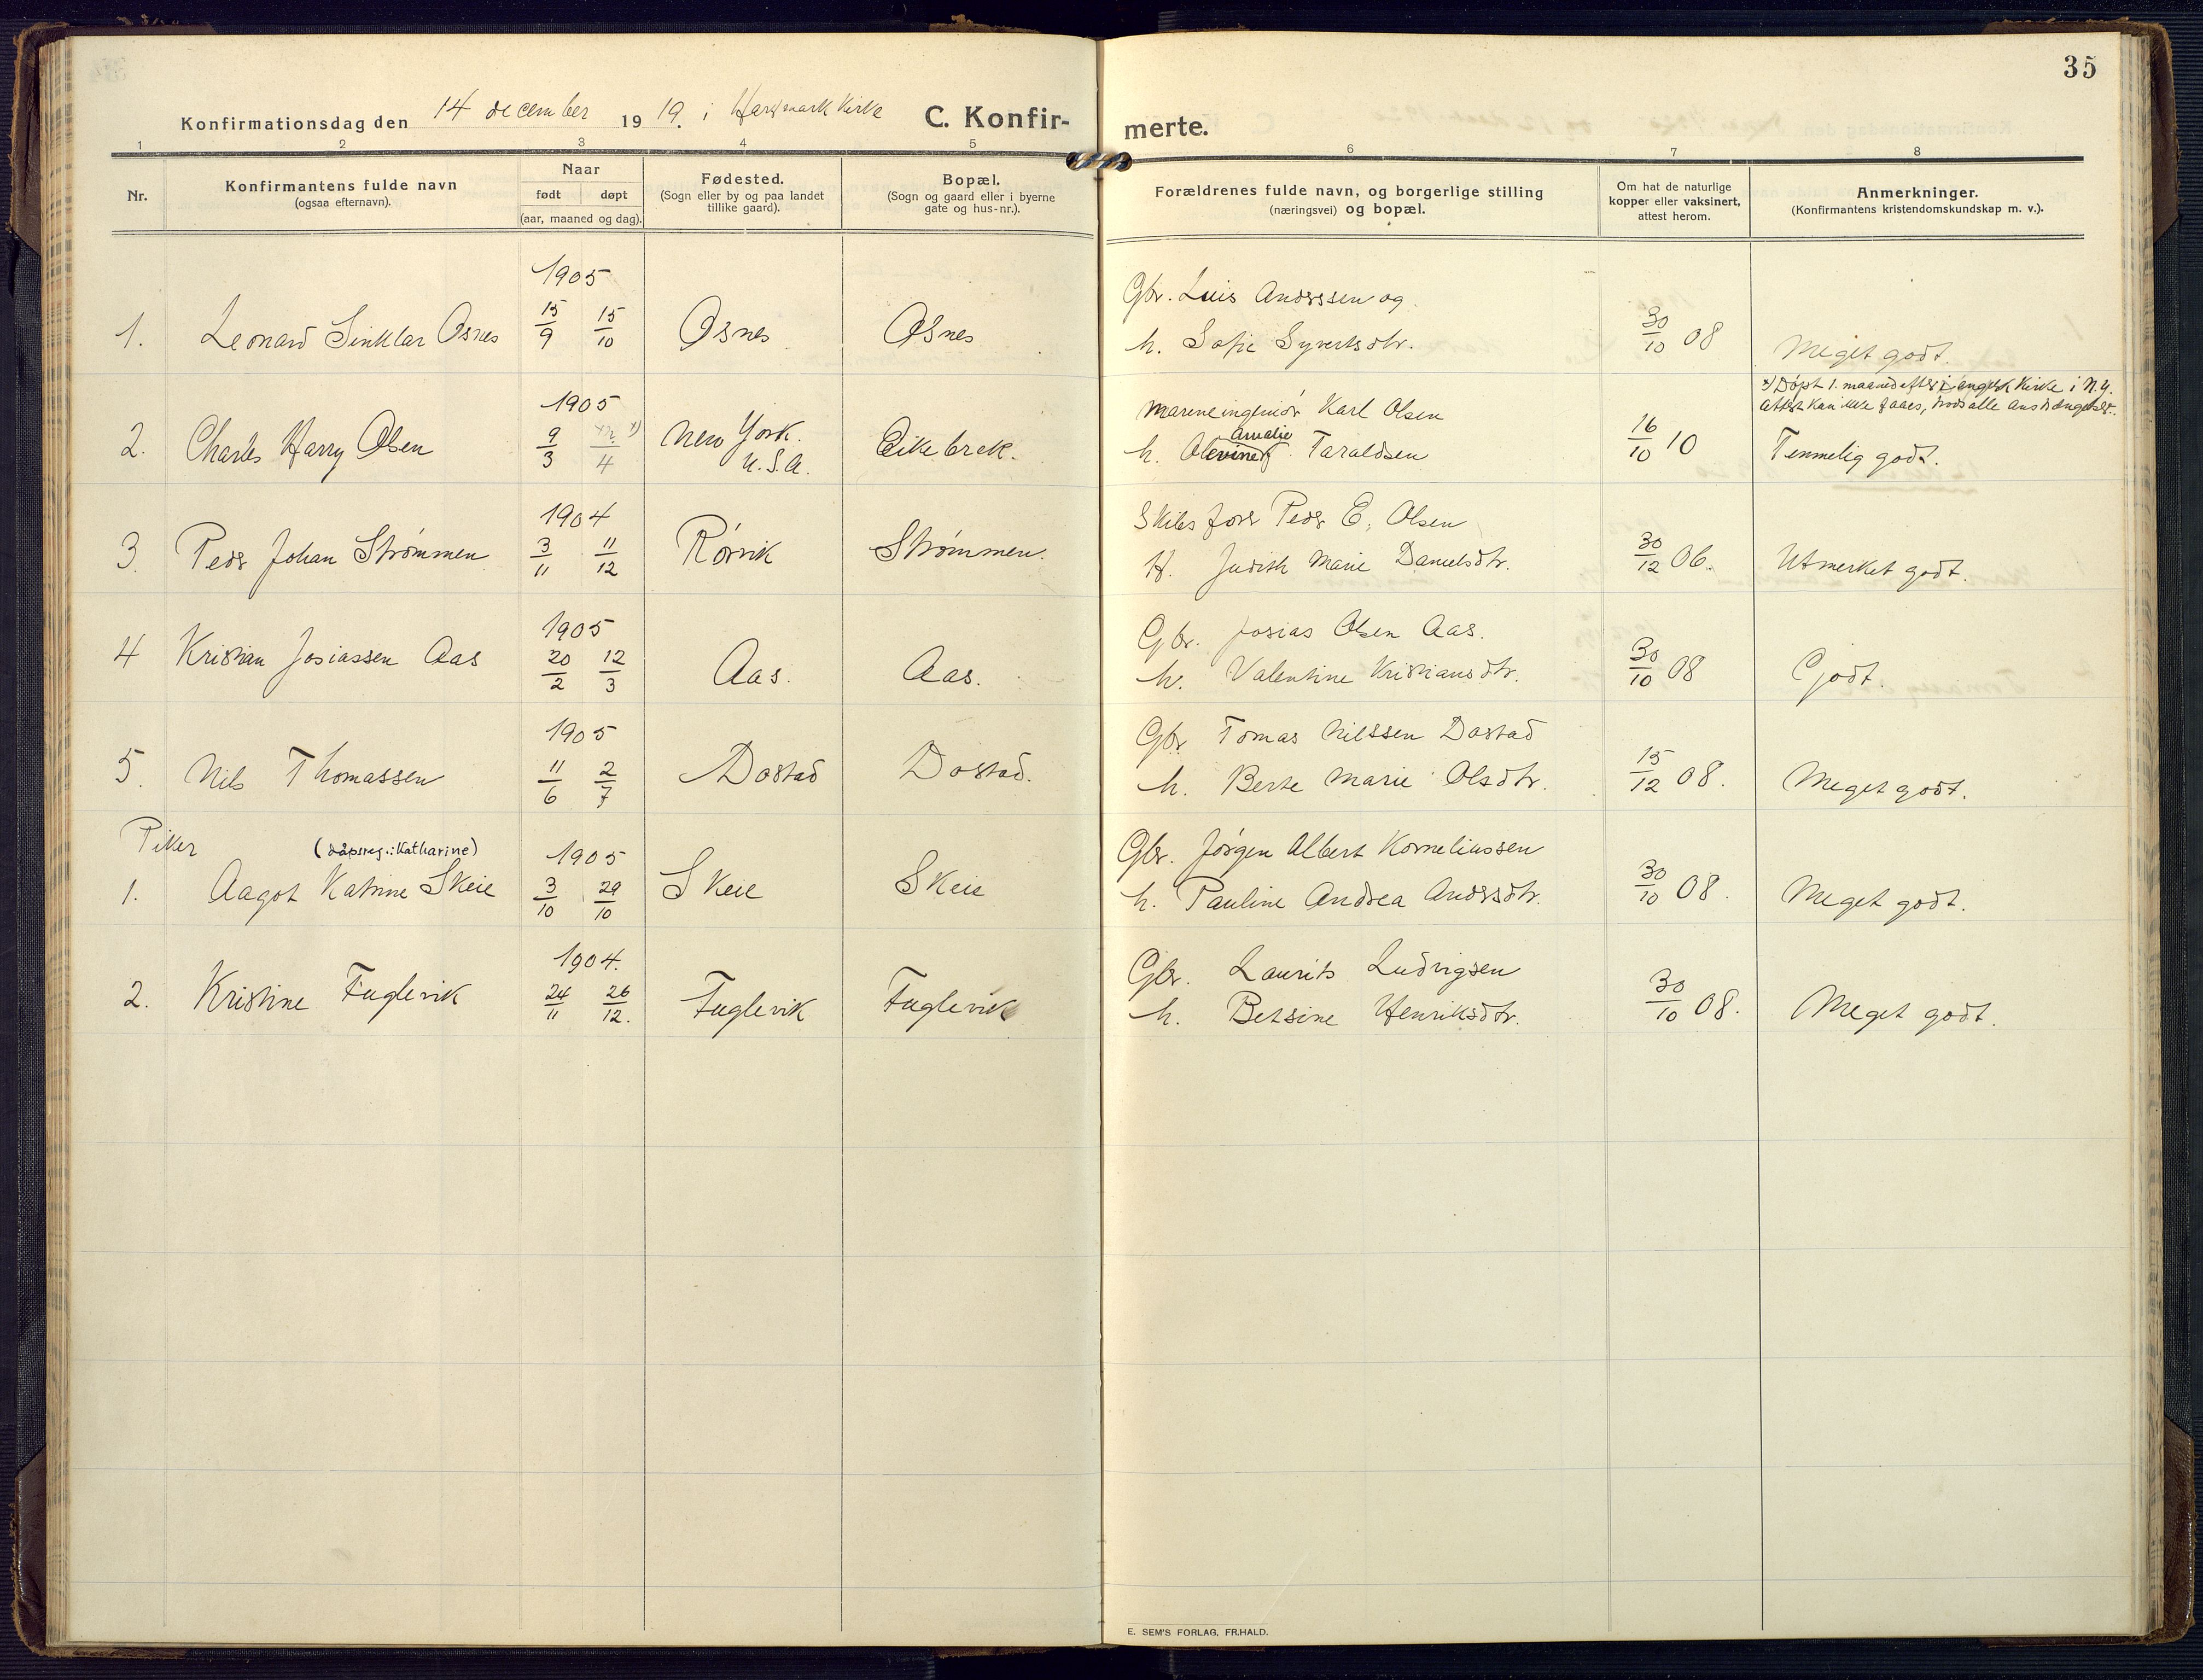 35
Konfirmationsdag den 14 december 1919. i Harkmark Kirke C. Konfir-merte.
1 2 3 4 5 6 7 8
Nr.
Konfirmantens fulde navn
(ogsaa efternavn).
Naar
født døpt
(aar, maaned og dag).
Fødested.
(Sogn eller by og paa landet
tillike gaard).
Bopæl.
(Sogn og gaard eller i byerne
gate og hus-nr.).
Forældrenes fulde navn, og borgerlige stilling
(næringsvei) og bopæl.
Om hat de naturlige
kopper eller vaksinert,
attest herom.
Anmerkninger.
(Konfirmantens kristendomskundskap m. v.).
1905
1. Leonard Sinklar Osnes 15/9 15/10 Osnes Osnes
Gbr. Luis Anderssen og
h. Sofie Syvertsdtr. 30/10 08 Meget godt.
1905
2. Charles Harry Olsen 9/3 4 x) New York. U.S.A. Eikebrek.
Marineingeniør Karl Olsen
h. Amalie Taraldsen 16/10 10
x) Døpt 1. maaned efter i engelsk Kirke i N.Y.
Attest kan ikke faaes, trods alle anstrængelser.
Temmelig godt.
1904
3. Peder Johan Strømmen 3/11 11/12 Rørvik Strømmen.
Skibsfører Peder E. Olsen
H. Judith Marie Danielsdtr. 30/12 06. Utmerket godt.
1905
4 Kristian Josiassen Aas 20/2 12/3 Aas. Aas.
Gbr. Josias Olsen Aas.
h. Valentine Kristiansdtr. 30/10 08 Godt.
1905
5. Nils Thomassen 11/6 2/7 Dostad Dostad.
Gbr. Tomas Nilssen Dostad
h. Berte Marie Olsdtr. 15/12 08. Meget godt.
Piker
(dåpsreg.: Katharine)
1905
1. Aagot Katrine Skeie 3/10 29/10 Skeie Skeie
Gbr. Jørgen Albert Korneliussen
h. Pauline Andrea Andersdtr. 30/10 08. Meget godt.
1904.
2. Kristine Fuglevik 24/11 26/12. Fuglevik Fuglevik
Gbr. Laurits Ludvigsen
h. Betsine Henriksdtr. 30/10 08. Meget godt.
E. SEM'S FORLAG, FR.HALD.